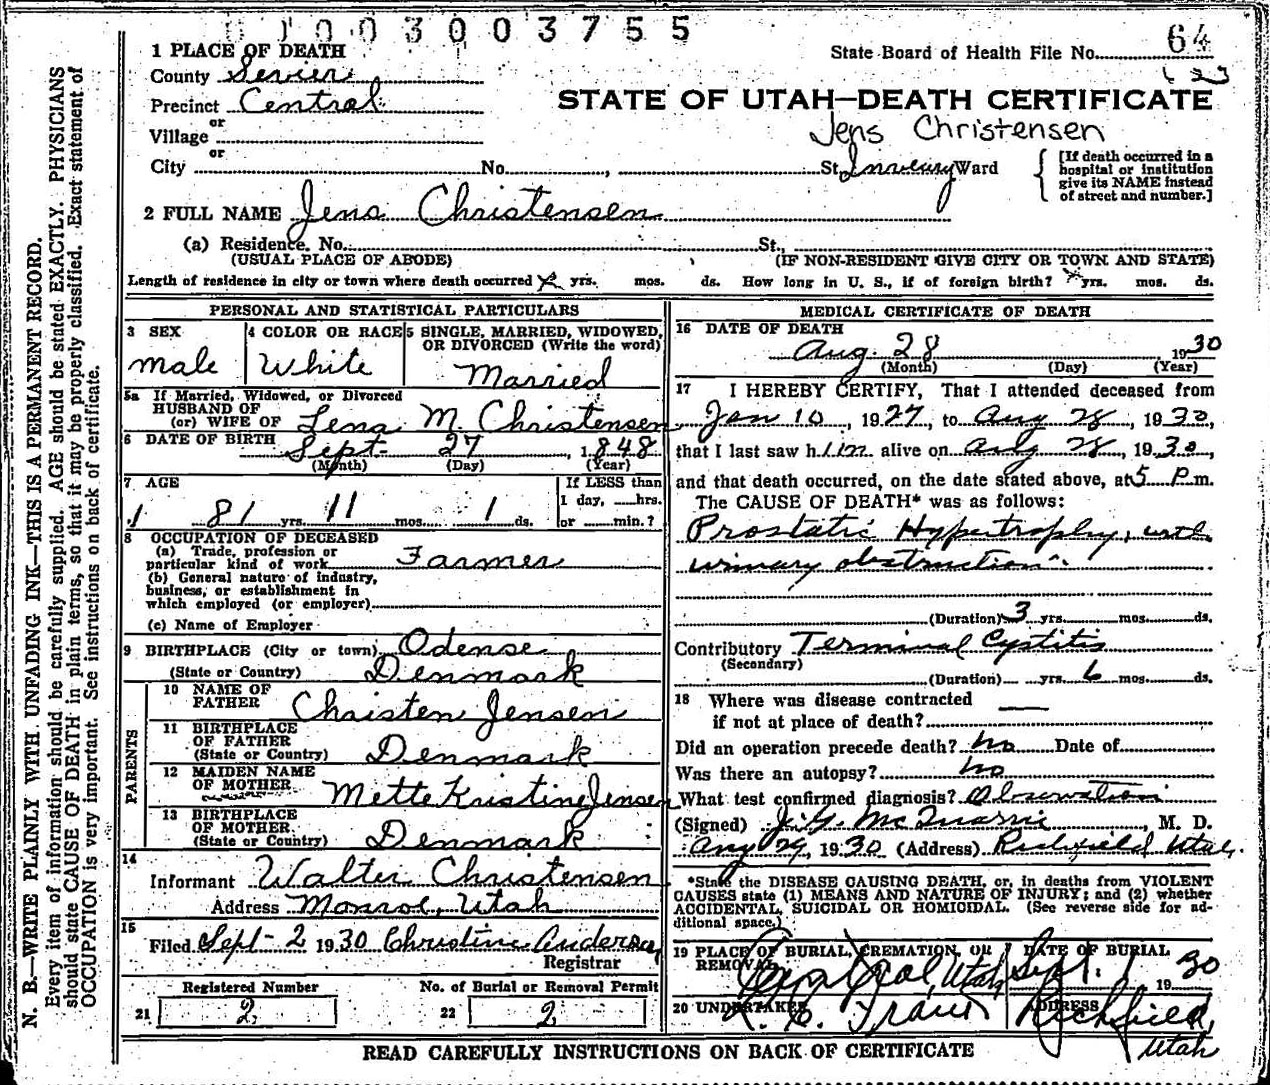 1003003755
64
State Board of Health File No.
1 PLACE OF DEATH
County Sevier
Precinct Central
or
Village
or
City No. , St. Ward
STATE OF UTAH—DEATH CERTIFICATE
Jens Christensen
[If death occurred in a hospital or institution give its NAME instead of street and number.]
2 FULL NAME Jens Christensen
(a) Residence. No. St.,
(USUAL PLACE OF ABODE) (IF NON-RESIDENT GIVE CITY OR TOWN AND STATE)
Length of residence in city or town where death occurred yrs. mos. ds. How long in U. S., if of foreign birth? yrs. mos. ds.
PERSONAL AND STATISTICAL PARTICULARS
3 SEX
male
4 COLOR OR RACE
White
5 SINGLE, MARRIED, WIDOWED, OR DIVORCED (Write the word)
Married
5a If Married, Widowed, or Divorced
HUSBAND OF
(or) WIFE OF Lena M. Christensen
6 DATE OF BIRTH
Sept. 27, 1848
(Month) (Day) (Year)
7 AGE
81 yrs. 11 mos. 1 ds.
If LESS than
1 day, hrs.
or min.?
8 OCCUPATION OF DECEASED
(a) Trade, profession or
particular kind of work Farmer
(b) General nature of industry,
business, or establishment in
which employed (or employer)
(c) Name of Employer
9 BIRTHPLACE (City or town) Odense
(State or Country) Denmark
PARENTS
10 NAME OF
FATHER Christen Jensen
11 BIRTHPLACE
OF FATHER
(State or Country) Denmark
12 MAIDEN NAME
OF MOTHER Mette Kristine Jensen
13 BIRTHPLACE
OF MOTHER
(State or Country) Denmark
14
Informant Walter Christensen
Address Monroe, Utah
15
Filed Sept-2 1930 Christine Anderson
Registrar
Registered Number
21 2
No. of Burial or Removal Permit
22 2
MEDICAL CERTIFICATE OF DEATH
16 DATE OF DEATH
Aug. 28 1930
(Month) (Day) (Year)
17 I HEREBY CERTIFY, That I attended deceased from
Jan 10, 1927, to Aug 28, 1930,
that I last saw him alive on Aug 28, 1930,
and that death occurred, on the date stated above, at 5 P.m.
The CAUSE OF DEATH* was as follows:
Prostatic Hypertrophy, with
urinary obstruction
(Duration) 3 yrs. mos. ds.
Contributory Terminal Cystitis
(Secondary)
(Duration) yrs. 6 mos. ds.
18 Where was disease contracted
if not at place of death?
Did an operation precede death? no Date of
Was there an autopsy? no
What test confirmed diagnosis? Observation
(Signed) J. G. McQuarrie, M. D.
Aug 29, 1930 (Address) Richfield Utah.
*State the DISEASE CAUSING DEATH, or, in deaths from VIOLENT
CAUSES state (1) MEANS AND NATURE OF INJURY; and (2) whether
ACCIDENTAL, SUICIDAL OR HOMICIDAL. (See reverse side for ad-
ditional space.)
19 PLACE OF BURIAL, CREMATION, OR
REMOVAL
Central, Utah
DATE OF BURIAL
Sept. 1 1930
20 UNDERTAKER
ADDRESS
Richfield,
Utah
READ CAREFULLY INSTRUCTIONS ON BACK OF CERTIFICATE
N. B.—WRITE PLAINLY WITH UNFADING INK—THIS IS A PERMANENT RECORD.
Every item of information should be carefully supplied. AGE should be stated EXACTLY. PHYSICIANS
should state CAUSE OF DEATH in plain terms, so that it may be properly classified. Exact statement of
OCCUPATION is very important. See instructions on back of certificate.